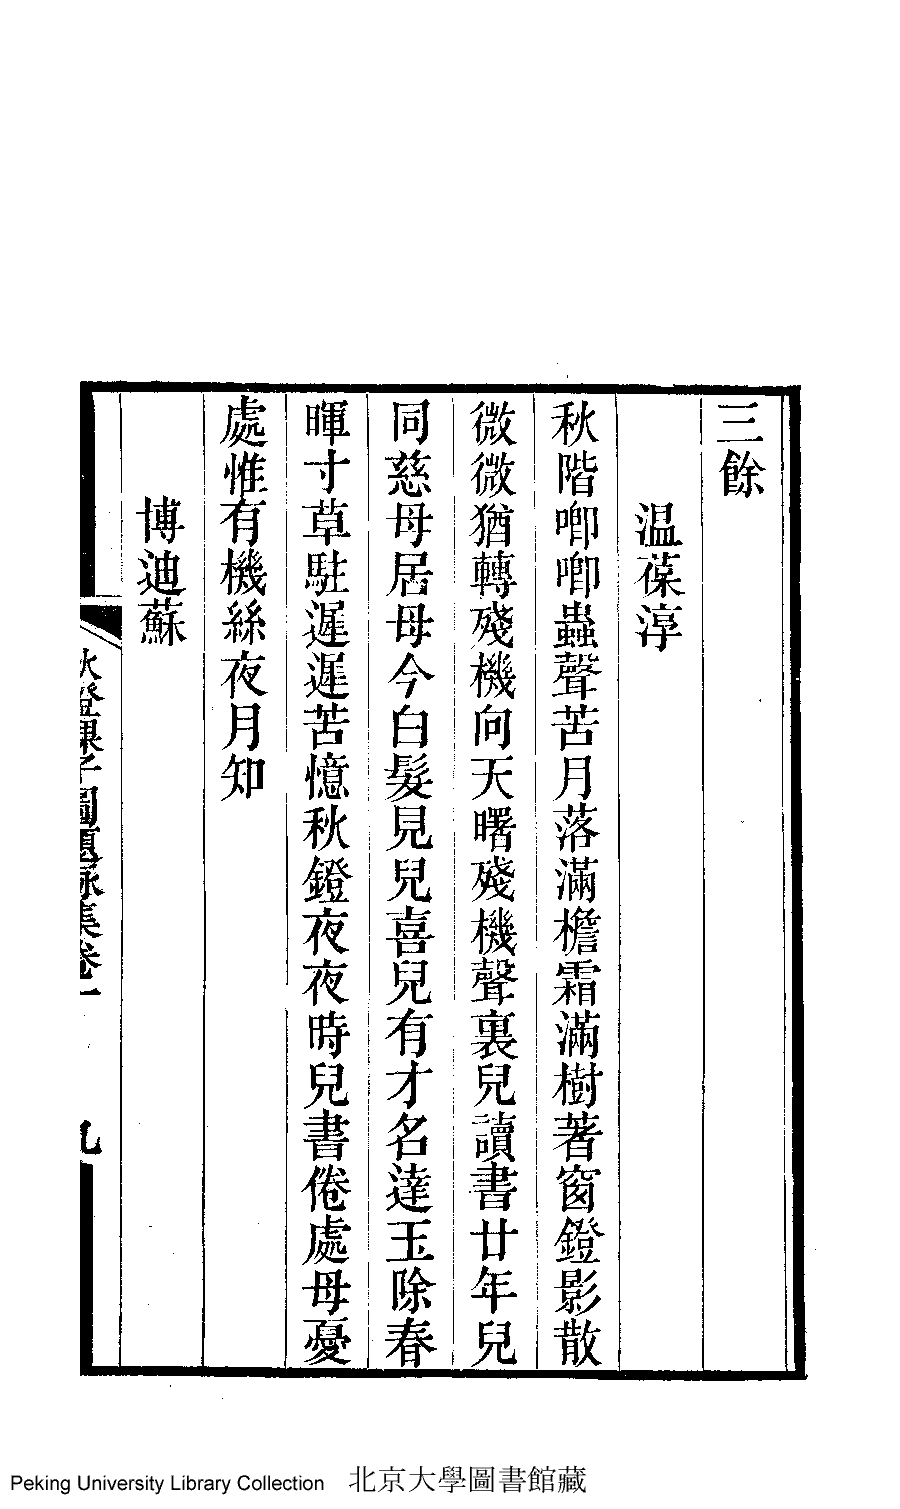 三餘
温葆淳
秋階喞喞蟲聲苦月落滿檐霜滿樹著窗鐙影散
微微猶轉殘機向天曙殘機聲裏兒讀書廿年兒
同慈母居母今白髮見兒喜兒有才名達玉除春
暉寸草駐遲遲苦憶秋鐙夜夜時兒書倦處母憂
處惟有機絲夜月知
博迪蘇
秋鐙課子圖題詠集卷一
九
Peking University Library Collection 北京大學圖書館藏